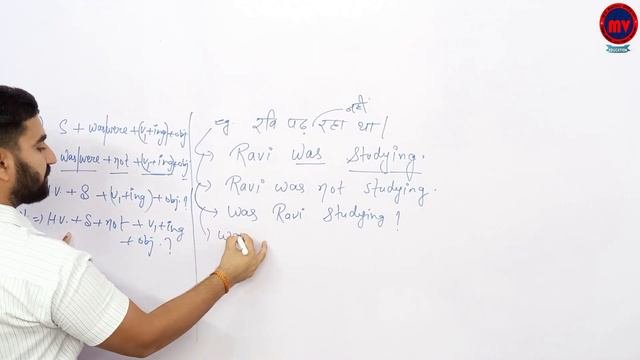 S + was/were + (V₁+ing) + obj
was/were + not + (V₁+ing) + obj
H.V. + S + (V₁+ing) + obj ?
⇒ H.V. + S + not + V₁ + ing
+ obj. ?
eg. रवि पढ़ रहा था।
नहीं
Ravi was studying.
Ravi was not studying.
Was Ravi studying ?
MV
EDUCATION